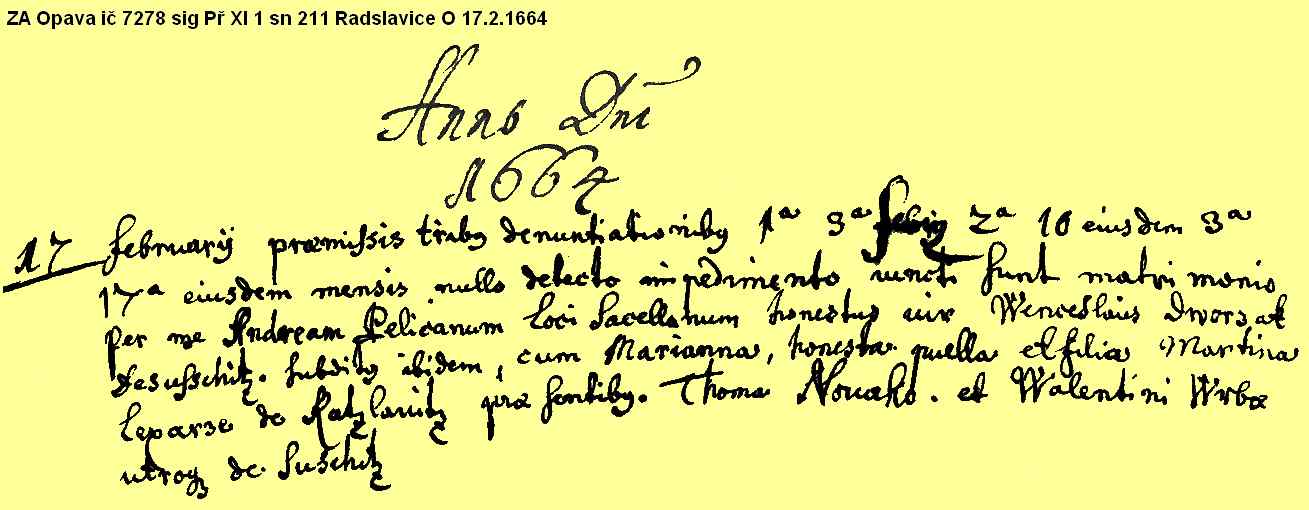 ZA Opava ič 7278 sig Př XI 1 sn 211 Radslavice O 17.2.1664
Anno Dni
1664
17 february præmissis tribus denuntiationibus 1ª 3ª 2ª 10 eiusdem 3ª
17ª eiusdem mensis nullo detecto impedimento iuncti sunt matrimonio
per me Andream Pelicanum loci Sacellanum honestus vir Wenceslaus Dworzak
de Susschitz. subditus ibidem, cum Marianna, honesta puella et filia Martina
Leparze de Ratzlawitz præsentibus. Thoma Nowako. et Walentini Wrbæ
utrosque de Suschitz